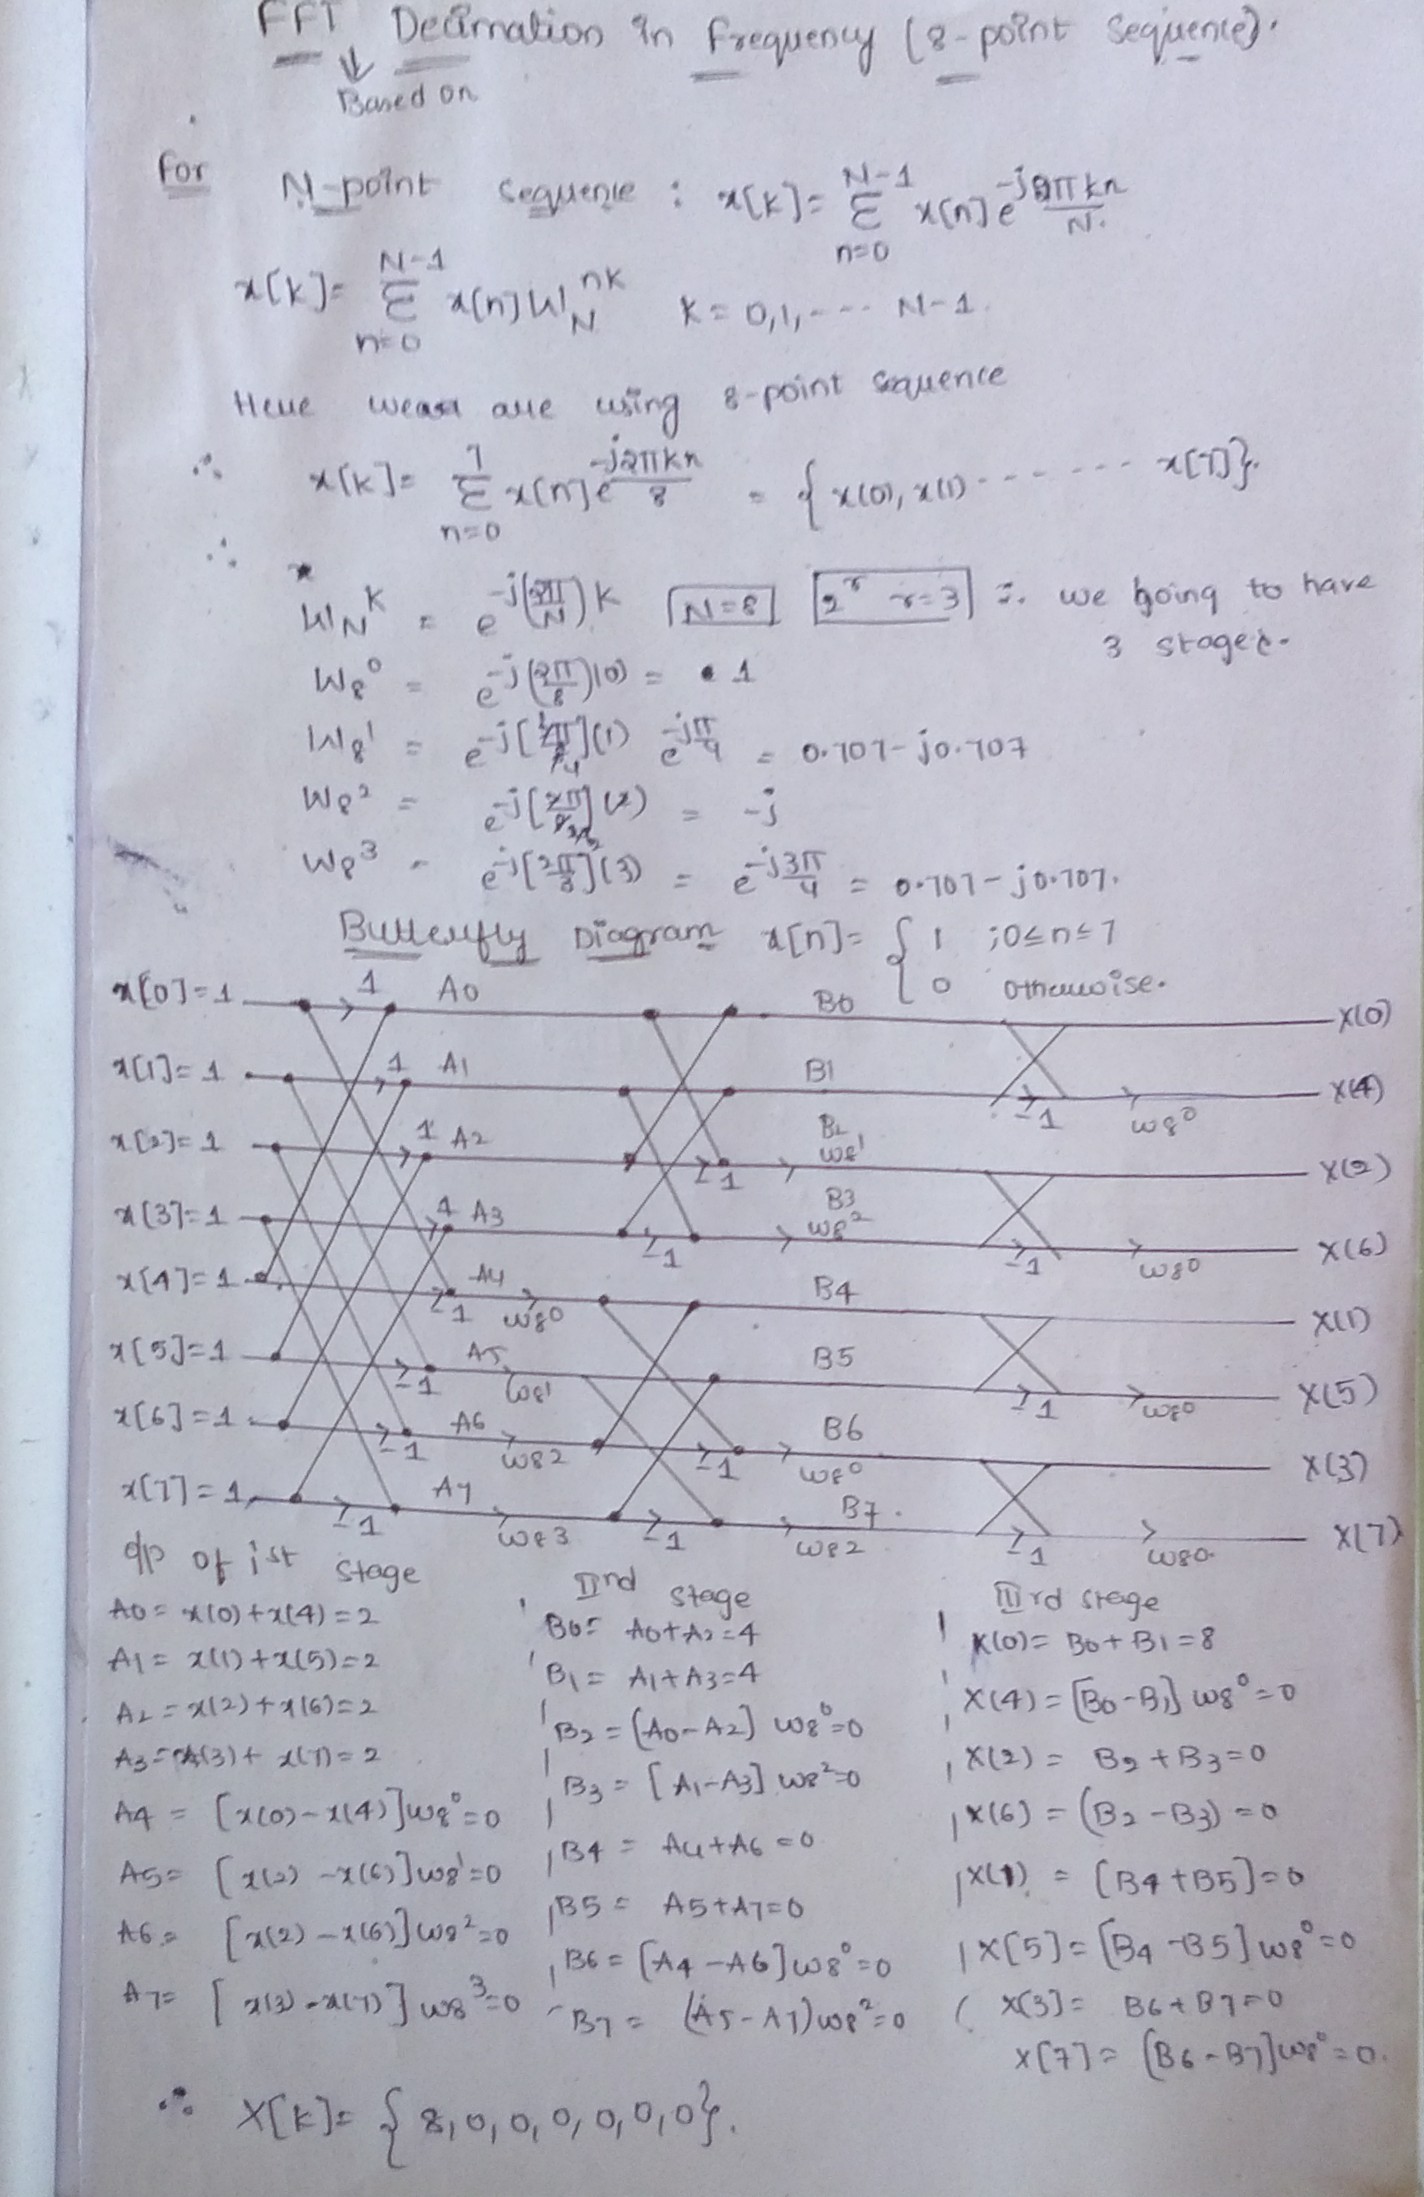 FFT Decimation in frequency (8-point Sequence).
↓
Based on
For N-point sequence : x[k]= N-1 Σ n=0 x[n]e -j2πkn/N.
x[k]= N-1 Σ n=0 x[n]W N nk K=0,1,---- N-1.
Here are using 8-point sequence
∴ x[k]= 7 Σ n=0 x[n]e -j2πkn/8 = {x(0), x(1)------- x[7]}.
∴
W N K = e -j(2π/N)K N=8 2^r r=3 ∴ we going to have
3 stages.
W8^0 = e -j(2π/8)(0) = 1
W8^1 = e -j[2π/8](1) e -jπ/4 = 0.707-j0.707
W8^2 = e -j[2π/8](2) = -j
W8^3 = e -j[2π/8](3) = e -j3π/4 = 0.707-j0.707.
Butterfly Diagram x[n]= { 1 ;0≤n≤7
0 otherwise.
x[0]=1 1 A0 B0 X(0)
x[1]=1 1 A1 B1 X(4)
-1 w8^0
x[2]=1 1 A2 B2 X(2)
-1 w8^1
x[3]=1 1 A3 B3 X(6)
-1 w8^2 -1 w80
x[4]=1 A4 B4 X(1)
-1 w80
x[5]=1 A5 B5 X(5)
-1 w81 -1 w80
x[6]=1 A6 B6 X(3)
-1 w82 -1 w8^0
x[7]=1 A7 B7. X(7)
-1 w83 -1 w82 -1 w80.
o/p of ist stage
A0 = x(0)+x(4)=2
A1 = x(1)+x(5)=2
A2 = x(2)+x(6)=2
A3 = x(3)+ x(7)=2
A4 = [x(0)-x(4)]w8^0=0
A5= [x(2) -x(6)]w8^1=0
A6= [x(2)-x(6)]w8^2=0
A7= [x(3)-x(7)]w8^3=0
IInd stage
B0= A0+A2=4
B1= A1+A3=4
B2=[A0-A2] w8^0=0
B3= [A1-A3] w8^2=0
B4= A4+A6=0
B5= A5+A7=0
B6=[A4-A6]w8^0=0
B7= (A5-A7)w8^2=0
IIIrd stage
X(0)= B0+B1=8
X(4)=[B0-B1] w8^0=0
X(2)= B2+B3=0
X(6)=(B2-B3)=0
X(1) = [B4+B5]=0
X[5]=[B4-B5]w8^0=0
X[3]= B6+B7=0
X[7]= [B6-B7]w8^0=0.
∴ X[k]= {8,0,0,0,0,0,0}.